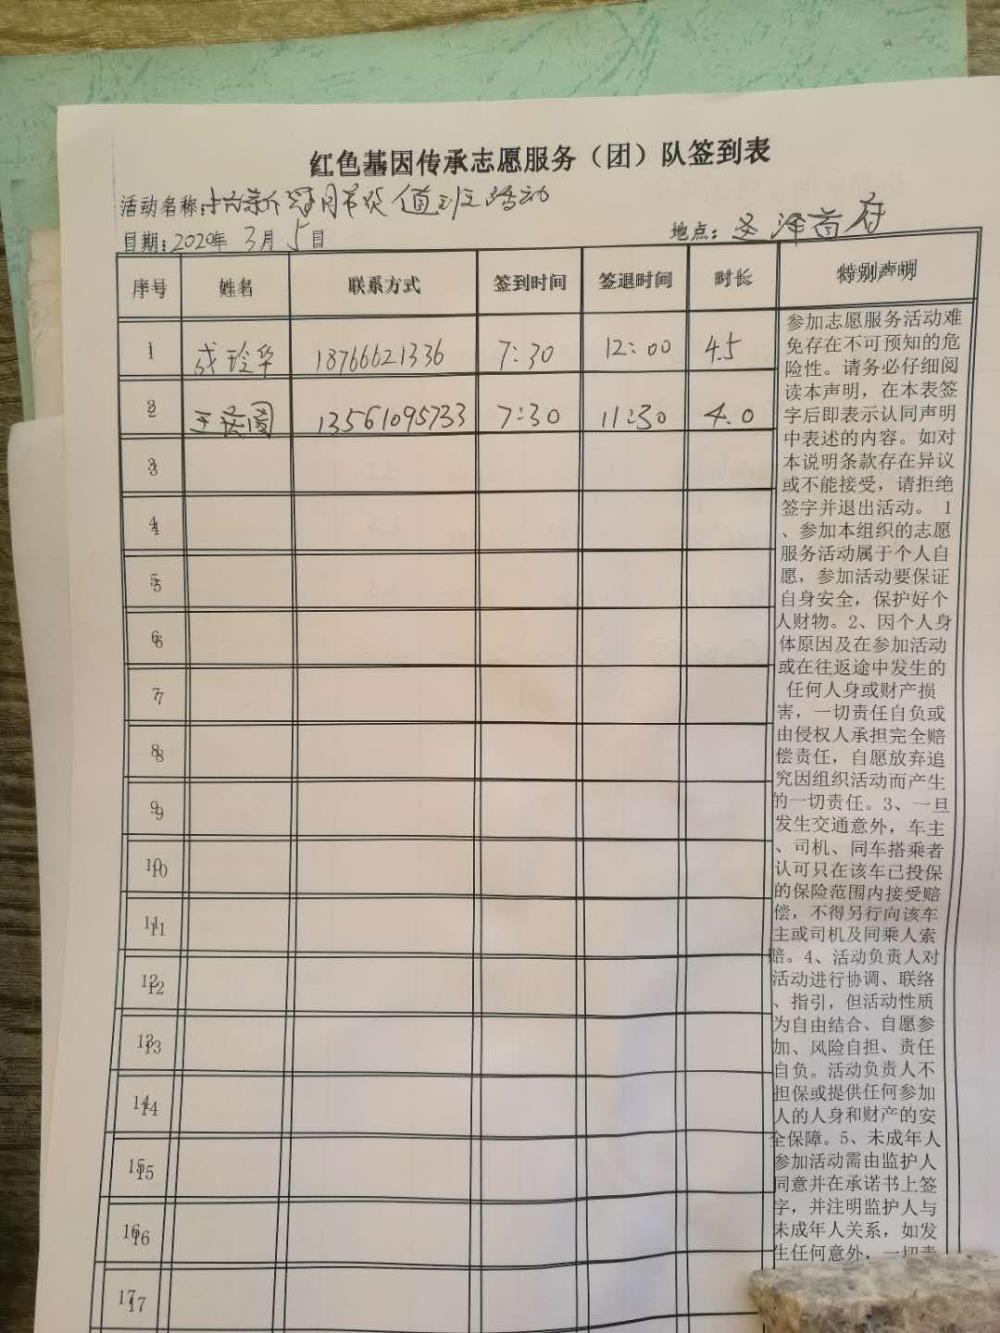 红色基因传承志愿服务（团）队签到表
活动名称: 值班活动
日期: 2020年 3月 5日
地点: 圣泽首府
序号 姓名 联系方式 签到时间 签退时间 时长 特别声明
1 成玲华 18766621336 7:30 12:00 4.5
2 13561095733 7:30 11:30 4.0
3
4
5
6
7
8
9
10
11
12
13
14
15
16
17
参加志愿服务活动难
免存在不可预知的危
险性。请务必仔细阅
读本声明，在本表签
字后即表示认同声明
中表述的内容。如对
本说明条款存在异议
或不能接受，请拒绝
签字并退出活动。 1
、参加本组织的志愿
服务活动属于个人自
愿，参加活动要保证
自身安全，保护好个
人财物。2、因个人身
体原因及在参加活动
或在往返途中发生的
任何人身或财产损
害，一切责任自负或
由侵权人承担完全赔
偿责任，自愿放弃追
究因组织活动而产生
的一切责任。3、一旦
发生交通意外，车主
、司机、同车搭乘者
认可只在该车已投保
的保险范围内接受赔
偿，不得另行向该车
主或司机及同乘人索
赔。4、活动负责人对
活动进行协调、联络
、指引，但活动性质
为自由结合、自愿参
加、风险自担、责任
自负。活动负责人不
担保或提供任何参加
人的人身和财产的安
全保障。5、未成年人
参加活动需由监护人
同意并在承诺书上签
字，并注明监护人与
未成年人关系，如发
生任何意外，一切责